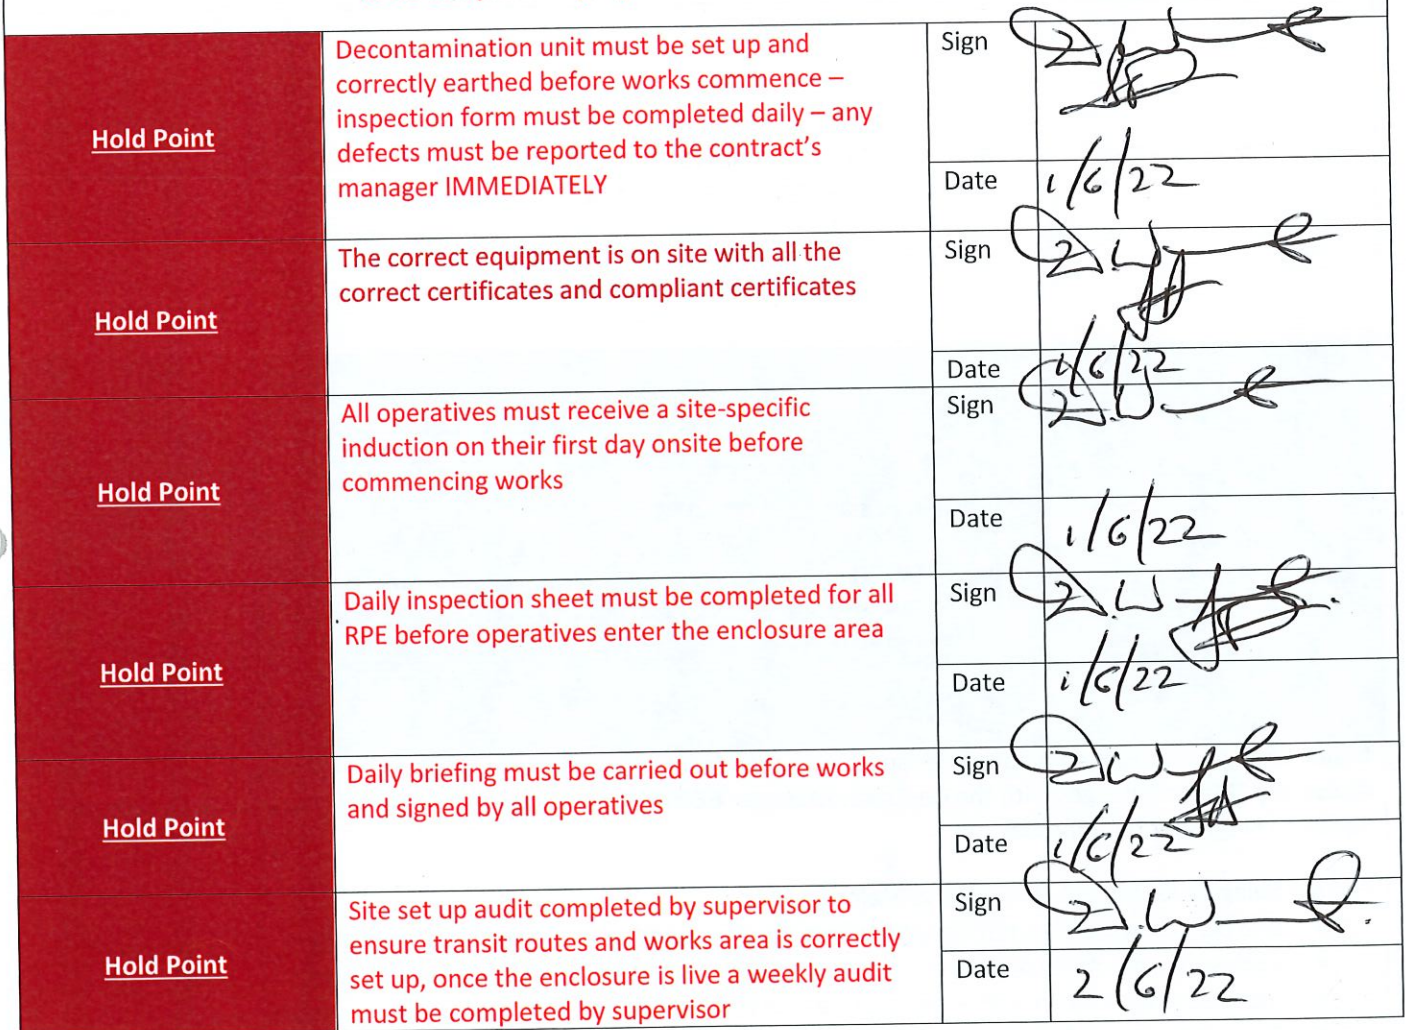 Decontamination unit must be set up and
correctly earthed before works commence –
inspection form must be completed daily – any
defects must be reported to the contract's
manager IMMEDIATELY
Hold Point
Sign
Date 1/6/22
The correct equipment is on site with all the
correct certificates and compliant certificates
Hold Point
Sign
Date 1/6/22
All operatives must receive a site-specific
induction on their first day onsite before
commencing works
Hold Point
Sign
Date 1/6/22
Daily inspection sheet must be completed for all
RPE before operatives enter the enclosure area
Hold Point
Sign
Date 1/6/22
Daily briefing must be carried out before works
and signed by all operatives
Hold Point
Sign
Date 1/6/22
Site set up audit completed by supervisor to
ensure transit routes and works area is correctly
set up, once the enclosure is live a weekly audit
must be completed by supervisor
Hold Point
Sign
Date 2/6/22